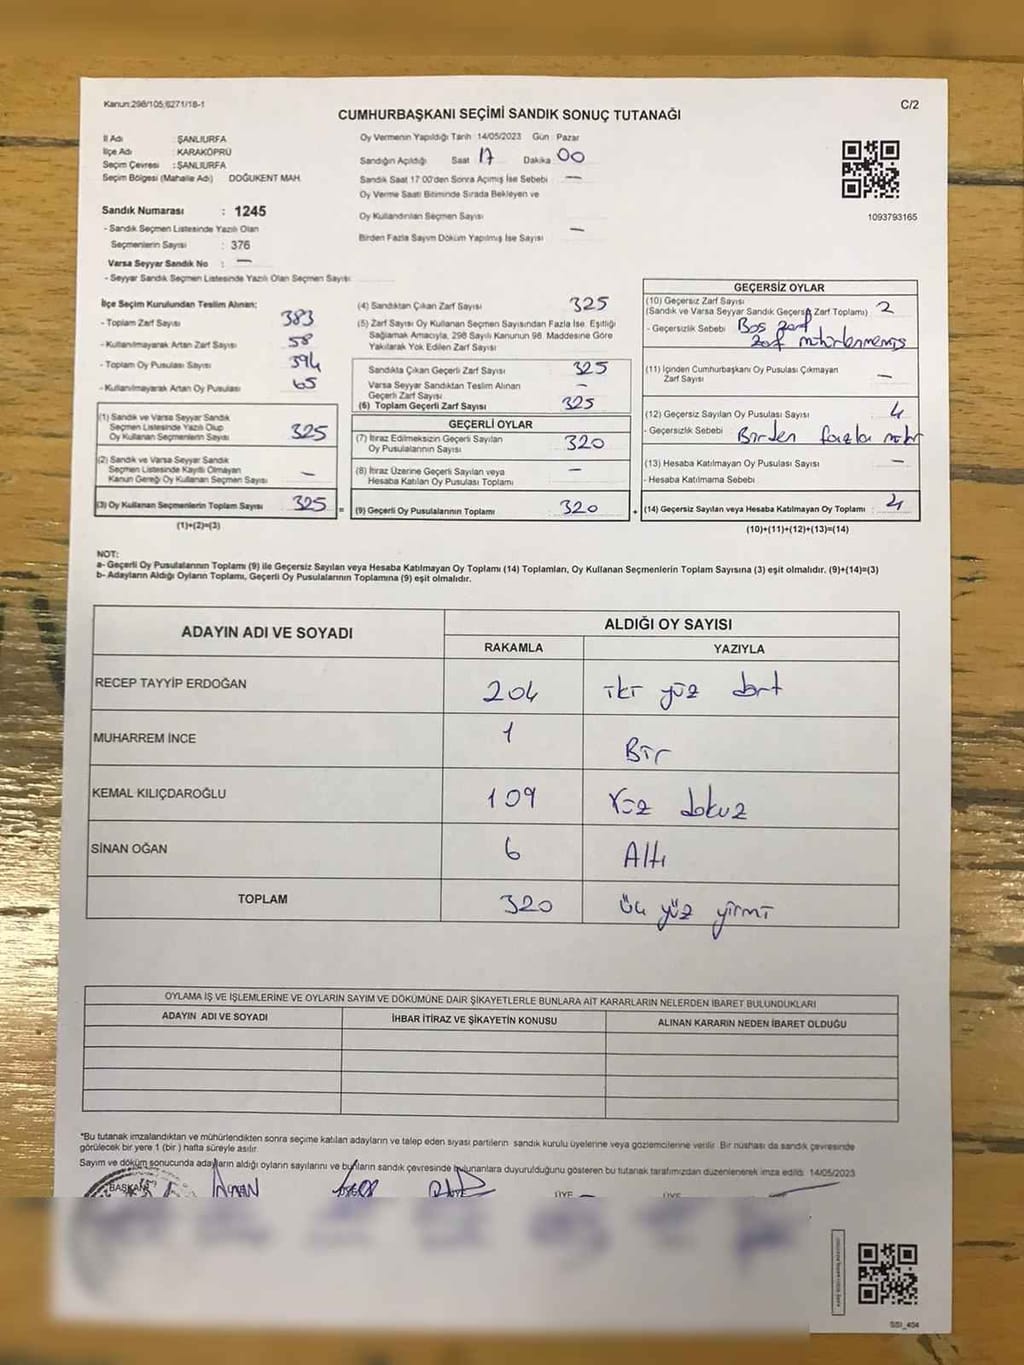 Kanun:298/105;6271/18-1
C/2
CUMHURBAŞKANI SEÇİMİ SANDIK SONUÇ TUTANAĞI
İl Adı : ŞANLIURFA
İlçe Adı : KARAKÖPRÜ
Seçim Çevresi : ŞANLIURFA
Seçim Bölgesi (Mahalle Adı) DOĞUKENT MAH.
Sandık Numarası : 1245
- Sandık Seçmen Listesinde Yazılı Olan
Seçmenlerin Sayısı : 376
Varsa Seyyar Sandık No : —
- Seyyar Sandık Seçmen Listesinde Yazılı Olan Seçmen Sayısı:
Oy Vermenin Yapıldığı Tarih 14/05/2023 Gün : Pazar
Sandığın Açıldığı Saat 17 Dakika 00
Sandık Saat 17:00'den Sonra Açımış İse Sebebi —
Oy Verme Saati Bitiminde Sırada Bekleyen ve
Oy Kullandırılan Seçmen Sayısı
Birden Fazla Sayım Döküm Yapılmış İse Sayısı —
1093793165
İlçe Seçim Kurulundan Teslim Alınan:
- Toplam Zarf Sayısı 383
- Kullanılmayarak Artan Zarf Sayısı 58
- Toplam Oy Pusulası Sayısı 394
- Kullanılmayarak Artan Oy Pusulası 65
(1) Sandık ve Varsa Seyyar Sandık
Seçmen Listesinde Yazılı Olup
Oy Kullanan Seçmenlerin Sayısı 325
(2) Sandık ve Varsa Seyyar Sandık
Seçmen Listesinde Kayıtlı Olmayan
Kanun Gereği Oy Kullanan Seçmen Sayısı —
(3) Oy Kullanan Seçmenlerin Toplam Sayısı 325 =
(1)+(2)=(3)
(4) Sandıktan Çıkan Zarf Sayısı 325
(5) Zarf Sayısı Oy Kullanan Seçmen Sayısından Fazla İse, Eşitliği
Sağlamak Amacıyla, 298 Sayılı Kanunun 98. Maddesine Göre
Yakılarak Yok Edilen Zarf Sayısı
Sandıkta Çıkan Geçerli Zarf Sayısı 325
Varsa Seyyar Sandıktan Teslim Alınan
Geçerli Zarf Sayısı —
(6) Toplam Geçerli Zarf Sayısı 325
GEÇERLİ OYLAR
(7) İtiraz Edilmeksizin Geçerli Sayılan
Oy Pusulalarının Sayısı 320
(8) İtiraz Üzerine Geçerli Sayılan veya
Hesaba Katılan Oy Pusulası Toplamı —
(9) Geçerli Oy Pusulalarının Toplamı 320 +
GEÇERSİZ OYLAR
(10) Geçersiz Zarf Sayısı
(Sandık ve Varsa Seyyar Sandık Geçersiz Zarf Toplamı) 2
- Geçersizlik Sebebi Boş zarf
zarf mühürlenmemiş
(11) İçinden Cumhurbaşkanı Oy Pusulası Çıkmayan
Zarf Sayısı —
(12) Geçersiz Sayılan Oy Pusulası Sayısı 4
- Geçersizlik Sebebi Birden fazla
(13) Hesaba Katılmayan Oy Pusulası Sayısı —
- Hesaba Katılmama Sebebi
(14) Geçersiz Sayılan veya Hesaba Katılmayan Oy Toplamı 4
(10)+(11)+(12)+(13)=(14)
NOT:
a- Geçerli Oy Pusulalarının Toplamı (9) ile Geçersiz Sayılan veya Hesaba Katılmayan Oy Toplamı (14) Toplamları, Oy Kullanan Seçmenlerin Toplam Sayısına (3) eşit olmalıdır. (9)+(14)=(3)
b- Adayların Aldığı Oyların Toplamı, Geçerli Oy Pusulalarının Toplamına (9) eşit olmalıdır.
ADAYIN ADI VE SOYADI
ALDIĞI OY SAYISI
RAKAMLA YAZIYLA
RECEP TAYYİP ERDOĞAN 204 iki yüz dört
MUHARREM İNCE 1 Bir
KEMAL KILIÇDAROĞLU 109 Yüz dokuz
SİNAN OĞAN 6 Altı
TOPLAM 320 üç yüz yirmi
OYLAMA İŞ VE İŞLEMLERİNE VE OYLARIN SAYIM VE DÖKÜMÜNE DAİR ŞİKAYETLERLE BUNLARA AİT KARARLARIN NELERDEN İBARET BULUNDUKLARI
ADAYIN ADI VE SOYADI İHBAR İTİRAZ VE ŞİKAYETİN KONUSU ALINAN KARARIN NEDEN İBARET OLDUĞU
*Bu tutanak imzalandıktan ve mühürlendikten sonra seçime katılan adayların ve talep eden siyasi partilerin sandık kurulu üyelerine veya gözlemcilerine verilir. Bir nüshası da sandık çevresinde
görülecek bir yere 1 (bir) hafta süreyle asılır.
Sayım ve döküm sonucunda adayların aldığı oyların sayılarını ve bunların sandık çevresinde bulunanlara duyurulduğunu gösteren bu tutanak tarafımızdan düzenlenerek imza edildi. 14/05/2023
BAŞKAN ÜYE ÜYE
SSI_404